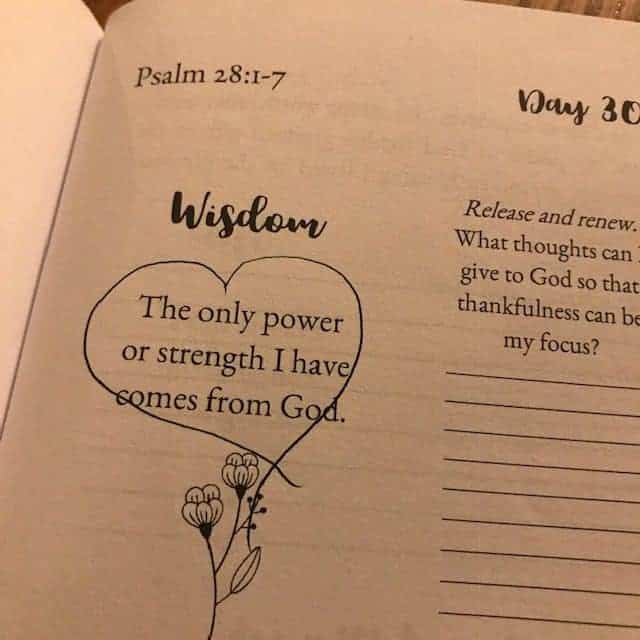 Psalm 28:1-7
Day 30
Wisdom
The only power
or strength I have
comes from God.
Release and renew.
What thoughts can I
give to God so that
thankfulness can be
my focus?